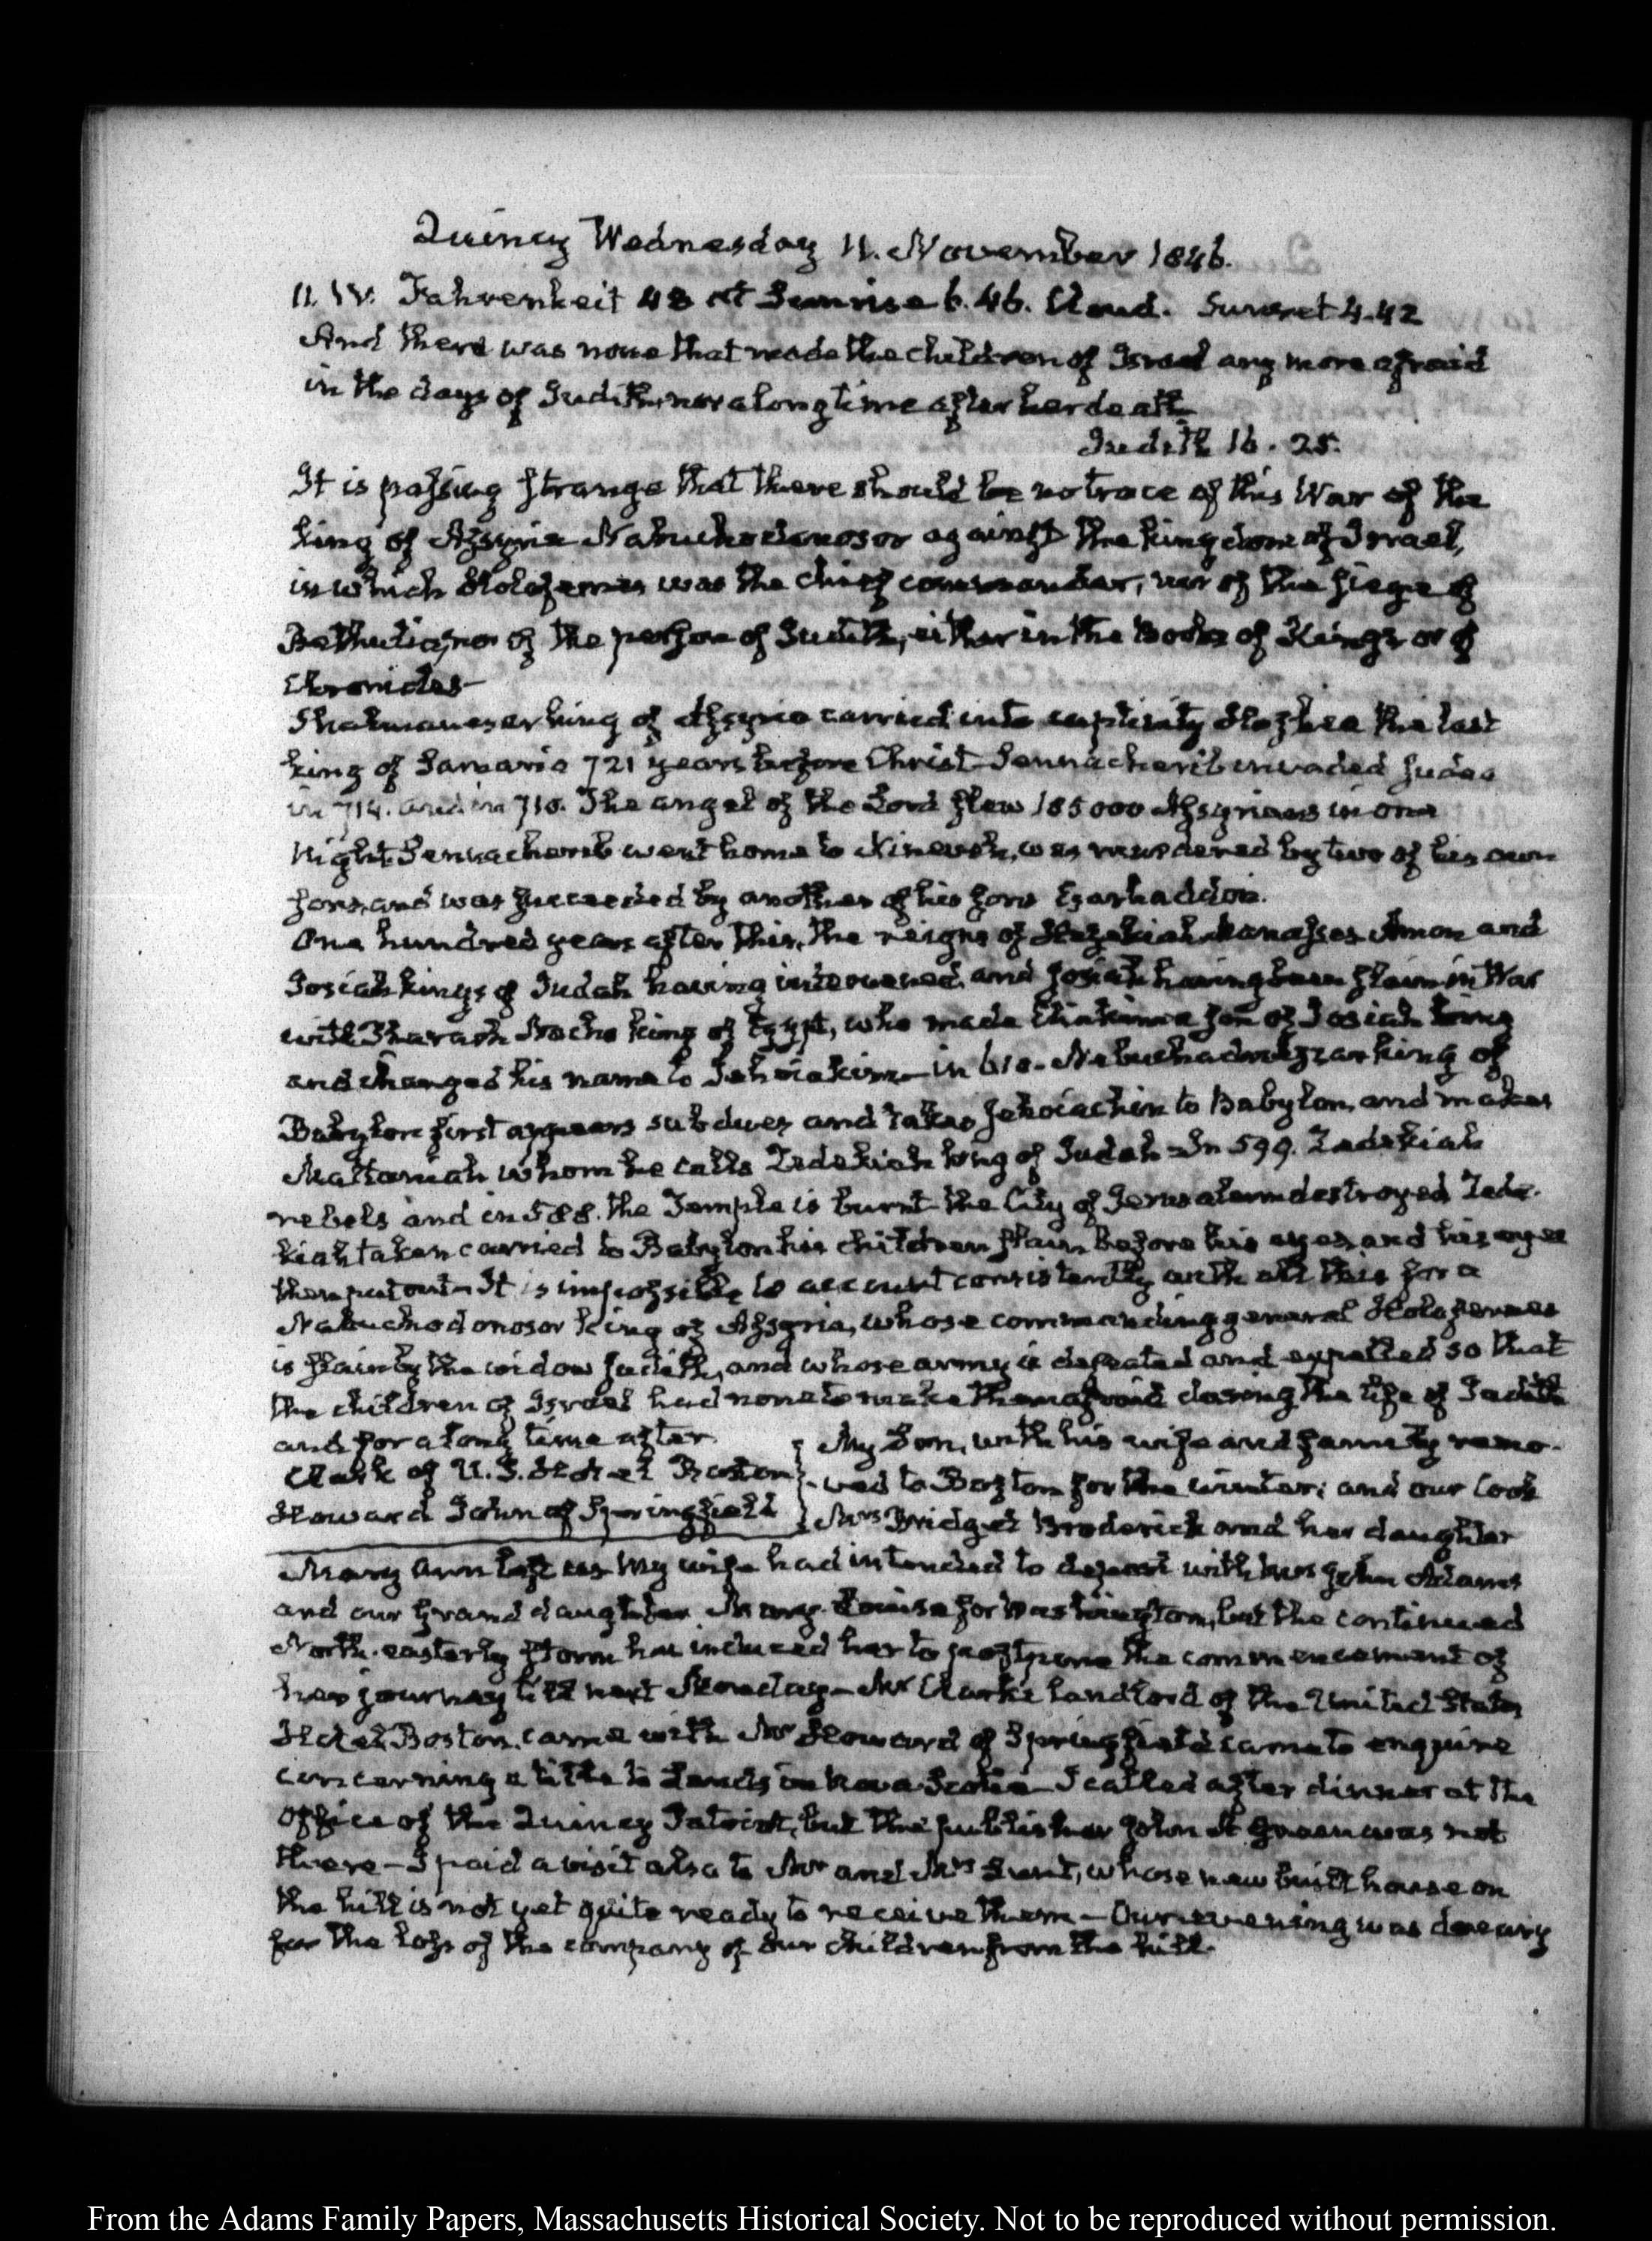 Quincy Wednesday 11. November 1846.
11. IV. Fahrenheit 48 at Sunrise 6.46. Cloud. Sunset 4.42
And there was none that made the children of Israel any more afraid
in the days of Judith, nor a long time after her death
Judith 16. 25.
It is passing strange that there should be no trace of this War of the
king of Assyria Nabuchodonosor against the kingdom of Israel,
in which Holofernes was the chief commander, nor of the siege of
Bethulia, nor of the person of Judith, either in the Books of Kings or of
Chronicles—
Shalmaneser king of Assyria carried into captivity Hoshea the last
king of Samaria 721 years before Christ— Sennacherib invaded Judea
in 714. and in 710. The angel of the Lord slew 185000 Assyrians in one
Night— Sennacherib went home to Nineveh, was murdered by two of his own
sons, and was succeeded by another of his sons Esarhaddon.
One hundred years after this, the reigns of Hezekiah Manasses Amon and
Josiah kings of Judah having intervened, and Josiah having been slain in War
with Pharaoh Necho king of Egypt, who made Eliakim a son of Josiah king
and changed his name to Jehoiakim— in 610— Nebuchadnezzar king of
Babylon first appears subdues and takes Jehoiachin to Babylon, and makes
Mattaniah whom he calls Zedekiah king of Judah— In 599. Zedekiah
rebels and in 588. the Temple is burnt— the City of Jerusalem destroyed Zede-
kiah taken carried to Babylon his children slain before his eyes and his eyes
then put out— It is impossible to account consistently with all this for a
Nabuchodonosor king of Assyria, whose commanding general Holofernes
is slain by the widow Judith, and whose army is defeated and expelled so that
the children of Israel had none to make them afraid during the life of Judith
and for a long time after.
Clark of U. S. Hotel Boston
Howard John of Springfield
My Son, with his wife and family remo-
ved to Boston for the winter: and our Cook
Mrs Bridget Broderick and her daughter
Mary Ann left us— My wife had intended to depart with Mrs John Adams
and our Grand daughter Mary-Louisa for Washington, but the continued
North-easterly storm has induced her to postpone the commencement of
her journey till next Monday— Mr Clark the landlord of the United States
Hotel Boston, came with Mr Howard of Springfield came to enquire
concerning a title to Lands in Nova-Scotia— I called after dinner at the
Office of the Quincy Patriot, but the publisher John A Green was not
there— I paid a visit also to Mr and Mrs Lunt, whose new built house on
the hill is not yet quite ready to receive them— Our evening was dreary
for the loss of the company of our children from the hill.
From the Adams Family Papers, Massachusetts Historical Society. Not to be reproduced without permission.